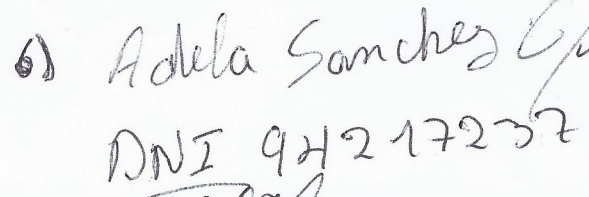 6) Adela Sanchez
DNI 94217237